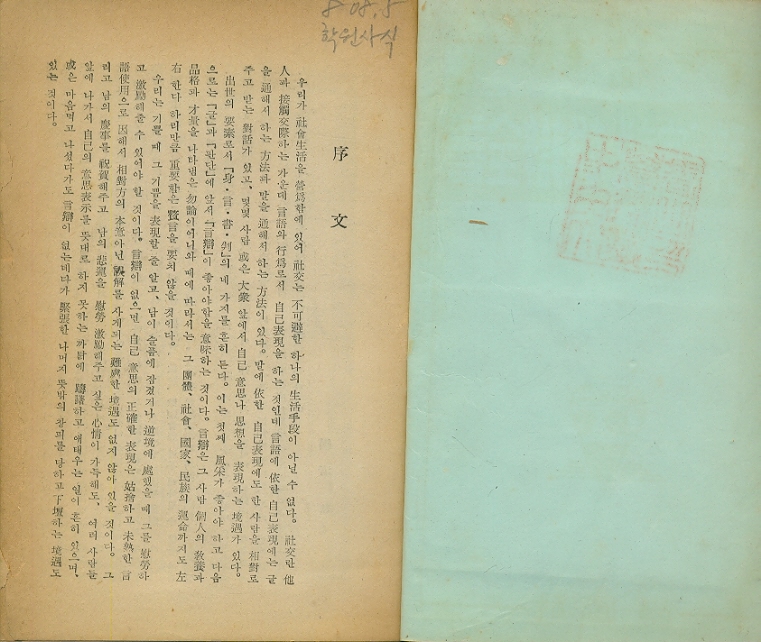 8.08.5
학원사식
序文
우리가 社會生活을 營爲함에 있어 社交는 不可避한 하나의 生活手段이 아닐 수 없다。 社交란 他
人과 接觸交際하는 가운데 言語와 行爲로서 自己表現을 하는 것인데 言語에 依한 自己表現에는 글
을 通해서 하는 方法과 말을 通해서 하는 方法이 있다。 말에 依한 自己表現에도 한 사람을 相對로
주고 받는 對話가 있고、 몇몇 사람 或은 大衆 앞에서 自己 意思나 思想을 表現하는 境遇가 있다。
出世의 要素로서 「身・言・書・判」의 네 가지를 흔히 든다。 이는 첫째 風采가 좋아야 하고 다음
으로는 「글」과 「판단」에 앞서 「言辯」이 좋아야함을 意味하는 것이다。 言辯은 그 사람 個人의 敎養과
品格과 才量을 나타냄은 勿論이어니와 때에 따라서는 그 團體、 社會、 國家、 民族의 運命까지도 左
右 한다 하리만큼 重要함은 贅言을 要치 않을 것이다。
우리는 기쁠 때 그 기쁨을 表現할 줄 알고、 남이 슬픔에 잠겼거나 逆境에 處했을 때 그를 慰勞하
고 激勵해줄 수 있어야 할 것이다。 言辯이 없으면 自己 意思의 正確한 表現은 姑捨하고 未熟한 言
語使用으로 因해서 相對方의 本意아닌 誤解를 사게되는 難處한 境遇도 없지 않아 있을 것이다。 그
리고 남의 慶事를 祝賀해주고 남의 悲運을 慰勞 激勵해주고 싶은 心情이 가득해도、 여러 사람들
앞에 나가서 自己의 意思表示를 뜻대로 하지 못하는 까닭에 躊躇하고 애태우는 일이 흔히 있으며、
或은 마음먹고 나섰다가도 言辯이 없는데다가 緊張한 나머지 뜻밖의 창피를 당하고 下壇하는 境遇도
있는 것이다。